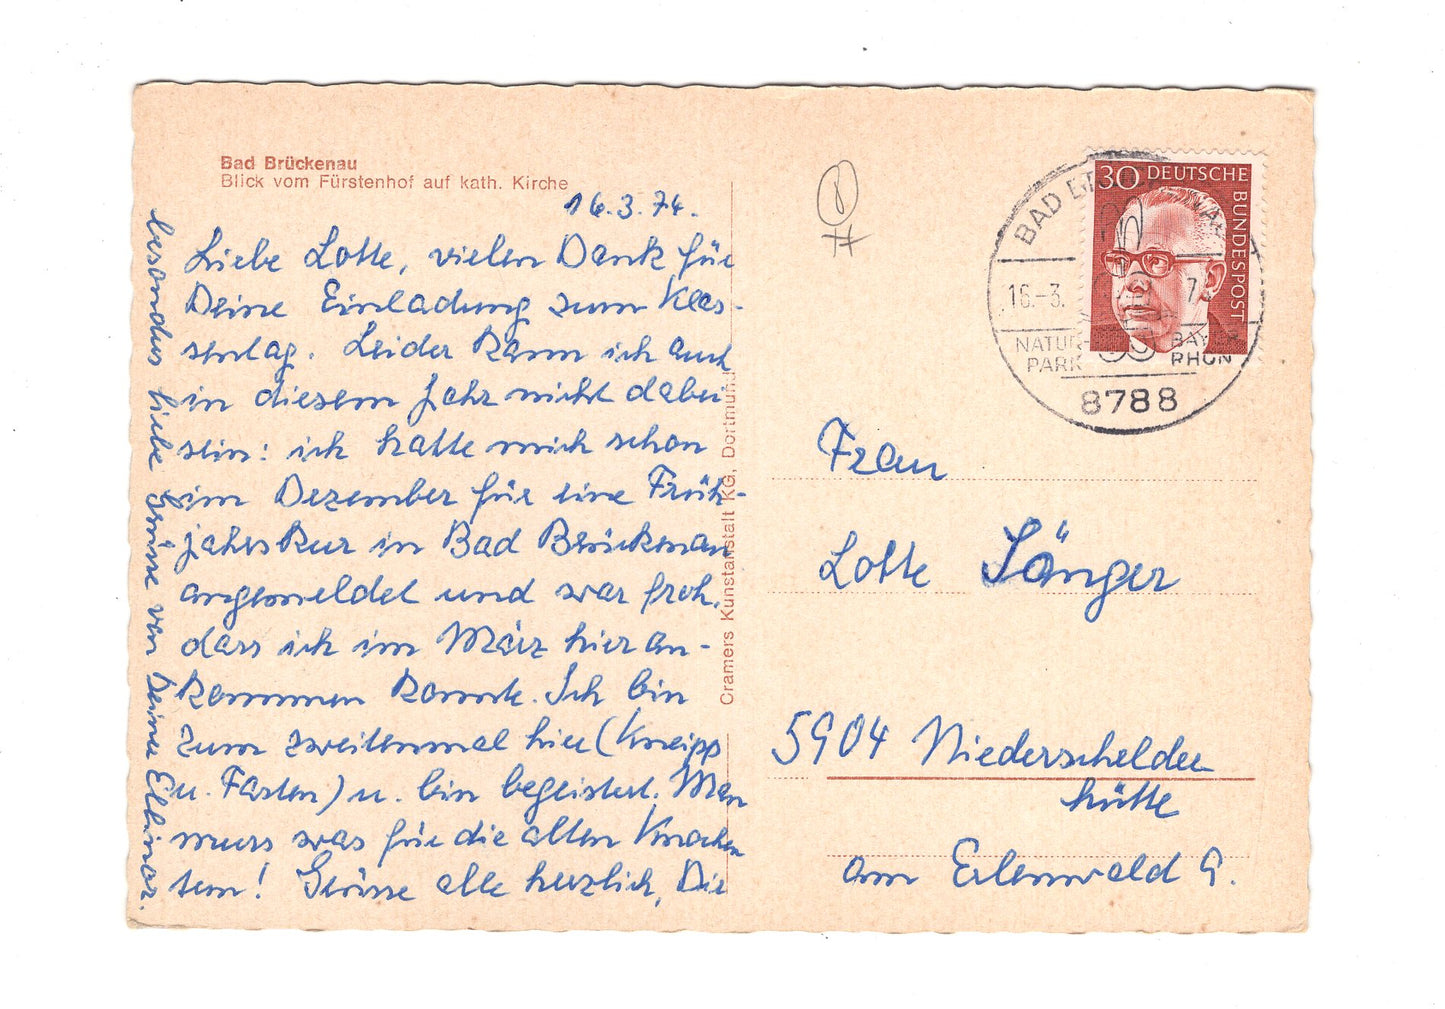 Bad Brückenau
Blick vom Fürstenhof auf kath. Kirche
16.3.74.
Liebe Lotte, vielen Dank für
Deine Einladung zum Klas-
sentag. Leider kann ich auch
in diesem Jahr nicht dabei
sein: ich hatte mich schon
im Dezember für eine Früh-
jahrskur in Bad Brückenau
angemeldet und war froh,
dass ich im März hier an-
kommen konnte. Ich bin
zum zweitenmal hier (Kneipp
u. Fasten) u. bin begeistert. Man
muss was für die alten Knochen
tun! Grüsse alle herzlich, Die
besonders liebe Grüsse von Deiner Ellinor.
Cramers Kunstanstalt KG, Dortmund
30 DEUTSCHE
BUNDESPOST
BAD
16.-3. 7
NATUR-
PARK
BAY.
RHÖN
8788
Frau
Lotte Sänger
5904 Niederschelder
hütte
am Erlenwald 9.